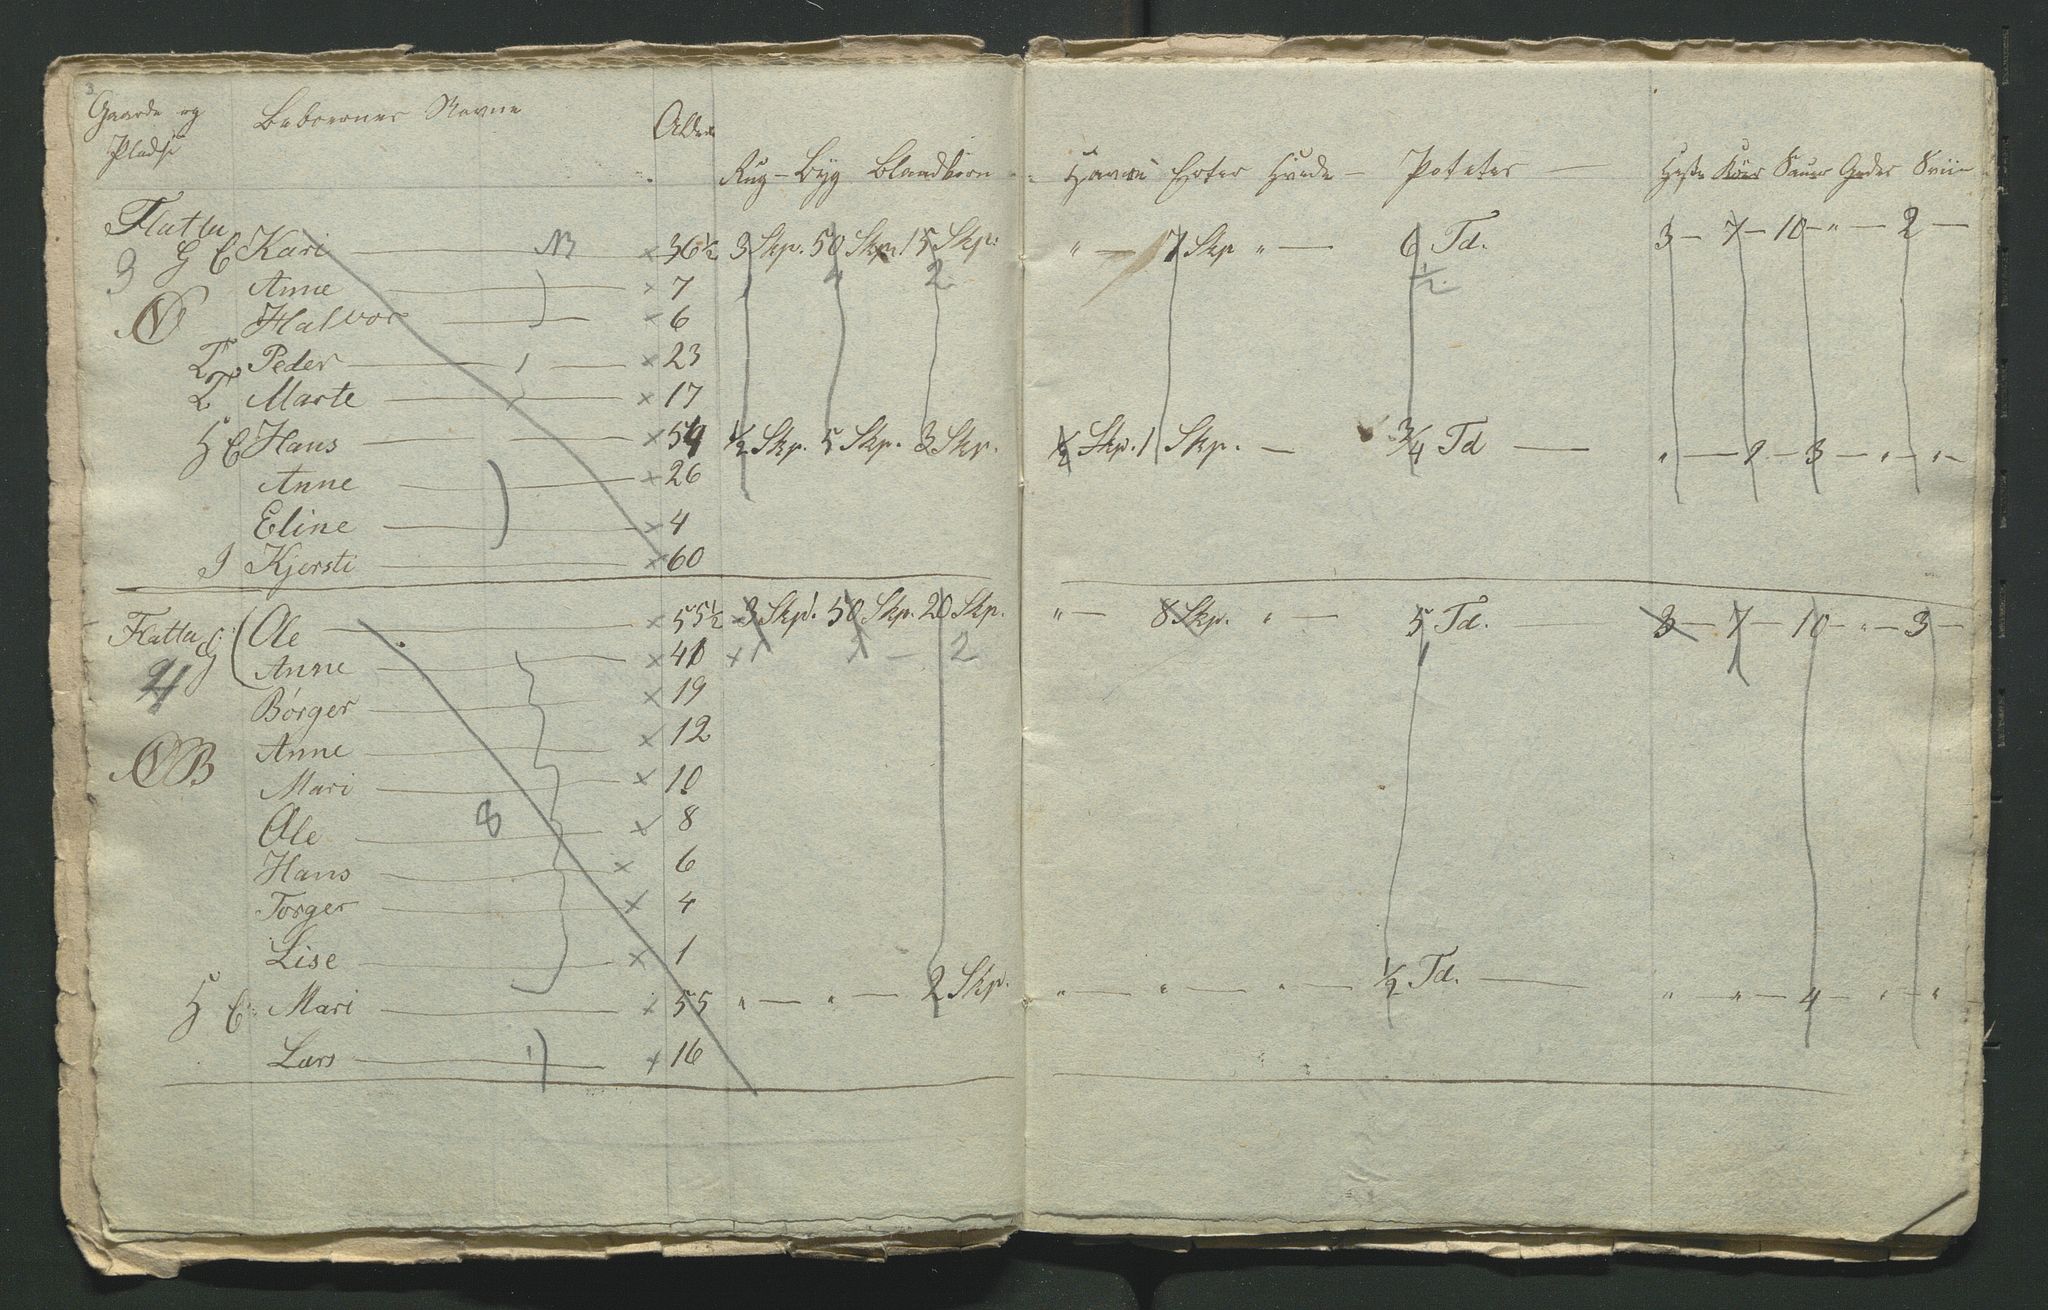 Gaarde og Beboernes Navne Alder
Pladse Rug - Byg Blandkorn Havre Erter Hvede - Poteter - Heste Köer Sauer Geder Sviin
Flattu
3 G E Kari NB × 36½ 3 Skp. 50 Skp. 15 Skp. " - 7 Skp " - 6 Td. 3 - 7 - 10 - " - 2 -
Anne × 7 4 2 ½
N Halvor × 6
T Peder × 23
T Marte × 17
H E Hans × 54 ½ Skp. 5 Skp. 3 Skp. ½ Skp. 1 Skp. - ¾ Td - " - 2 - 3 - " - " -
Anne × 26
Eline × 4
I Kjersti × 60
Flattu G Ole × 55½ 3 Skp. 50 Skp. 20 Skp. " - 8 Skp. " - 5 Td. - 3 - 7 - 10 - " - 3 -
Anne × 40 × 1 2 1
4 Börger × 19
NB Anne × 12
Mari × 10
8 Ole × 8
Hans × 6
Torger × 4
Lise × 1
H E Mari × 55 " - " - 2 Skp. " - " - " - ½ Td. - " - " - 4 - " - "
Lars × 16